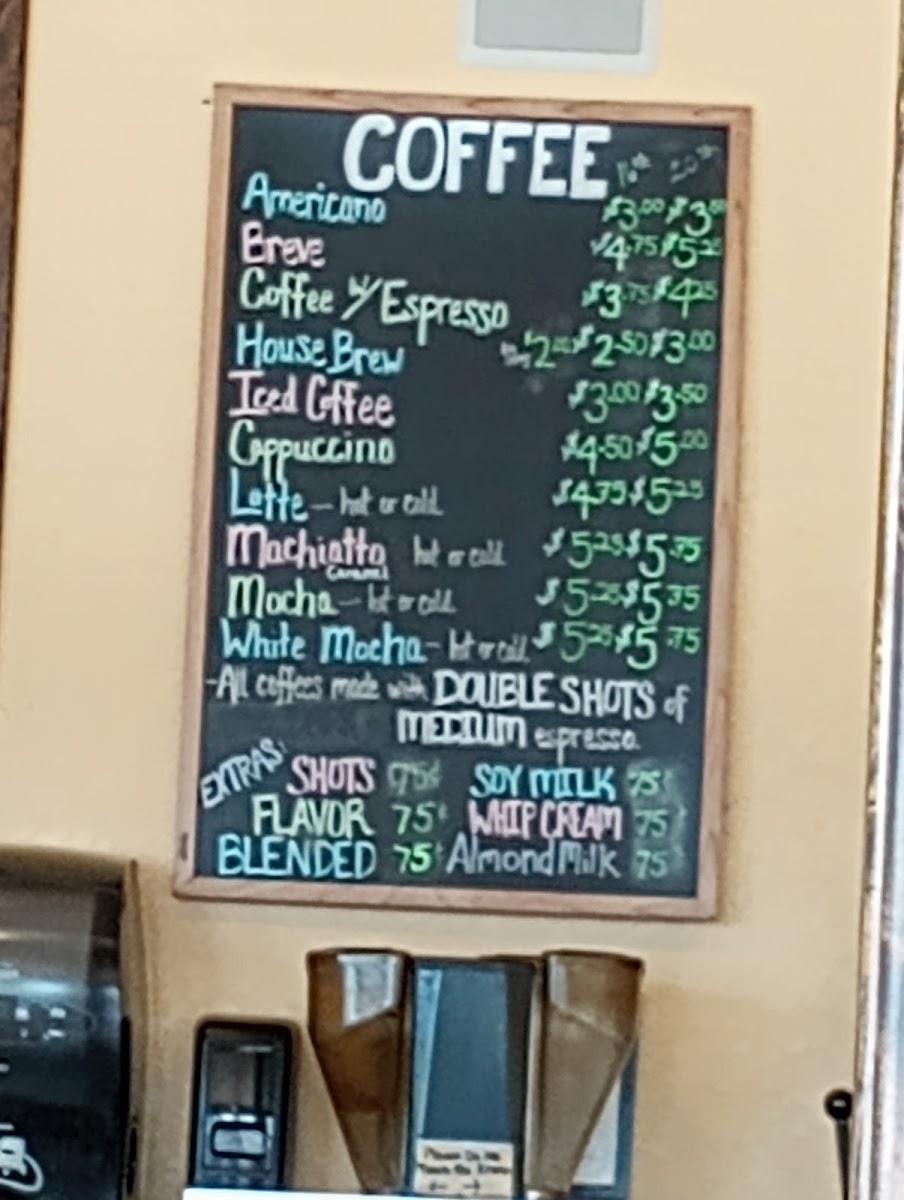 COFFEE 16oz 20oz
Americano $3.00
Breve $4.75 $5.25
Coffee w/ Espresso $3.75 $4.25
House Brew $2.00 $2.50 $3.00
Iced Coffee $3.00 $3.50
Cappuccino $4.50 $5.00
Latte - hot or cold $4.75 $5.25
Machiatto hot or cold $5.25 $5.75
Caramel
Mocha - hot or cold $5.25 $5.75
White Mocha - hot or cold $5.25 $5.75
-All coffees made with DOUBLE SHOTS of
MEDIUM espresso.
EXTRAS: SHOTS 75¢ SOY MILK 75¢
FLAVOR 75¢ WHIP CREAM 75¢
BLENDED 75¢ Almond Milk 75¢